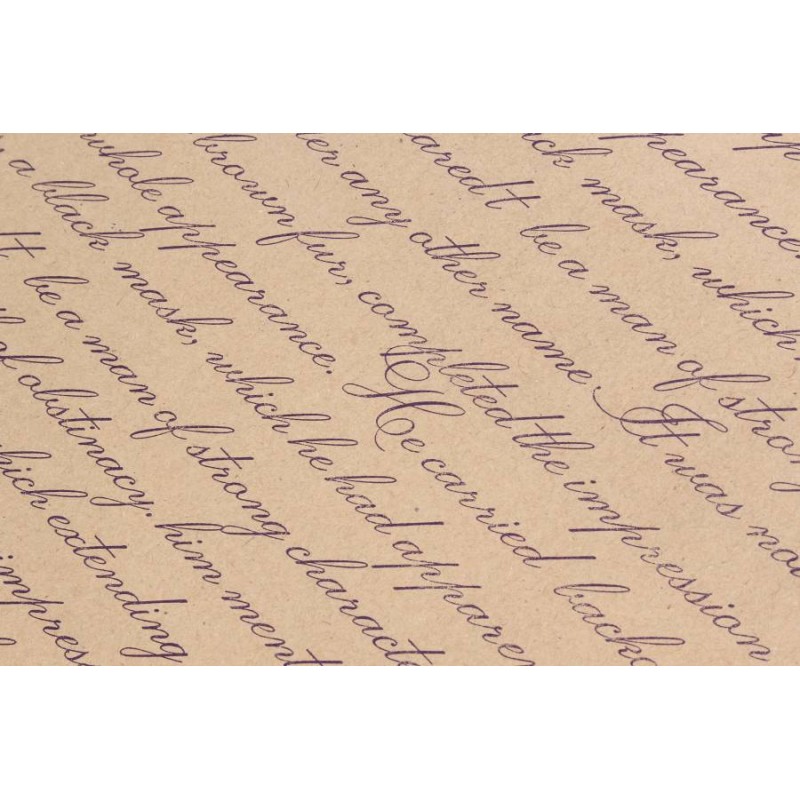 ppearance
ck mask, which
aredt be a man of stron
er any other name. It was no
brown fur, completed the impression
whole appearance. He carried back
a black mask, which he had appare
lt be a man of strong characte
of obstinacy. him ment
hich extending
impres